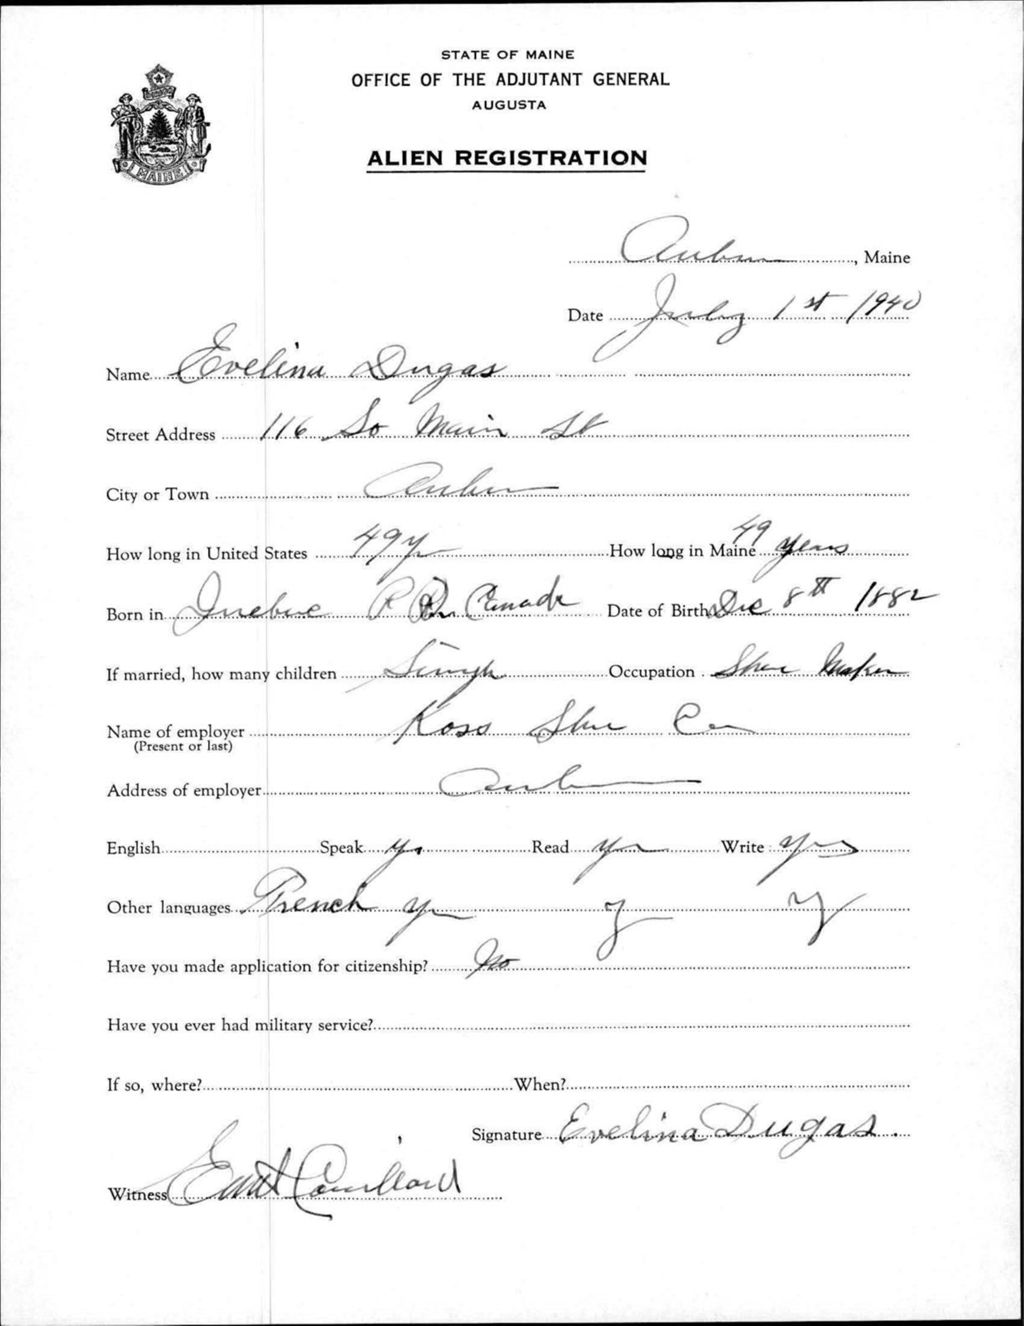 STATE OF MAINE
OFFICE OF THE ADJUTANT GENERAL
AUGUSTA
ALIEN REGISTRATION
MAINE
Auburn, Maine
Date July 1st 1940
Name Evelina Dugas
Street Address 116 So Main St
City or Town Auburn
How long in United States 49 yr How long in Maine 49 years
Born in Quebec Canada Date of Birth Dec 8th 1882
If married, how many children Single Occupation Shoe Maker
Name of employer Koss Shoe Co
(Present or last)
Address of employer Auburn
English Speak Yes Read Yes Write Yes
Other languages French Yes y y
Have you made application for citizenship? No
Have you ever had military service?
If so, where? When?
Signature Evelina Dugas.
Witness